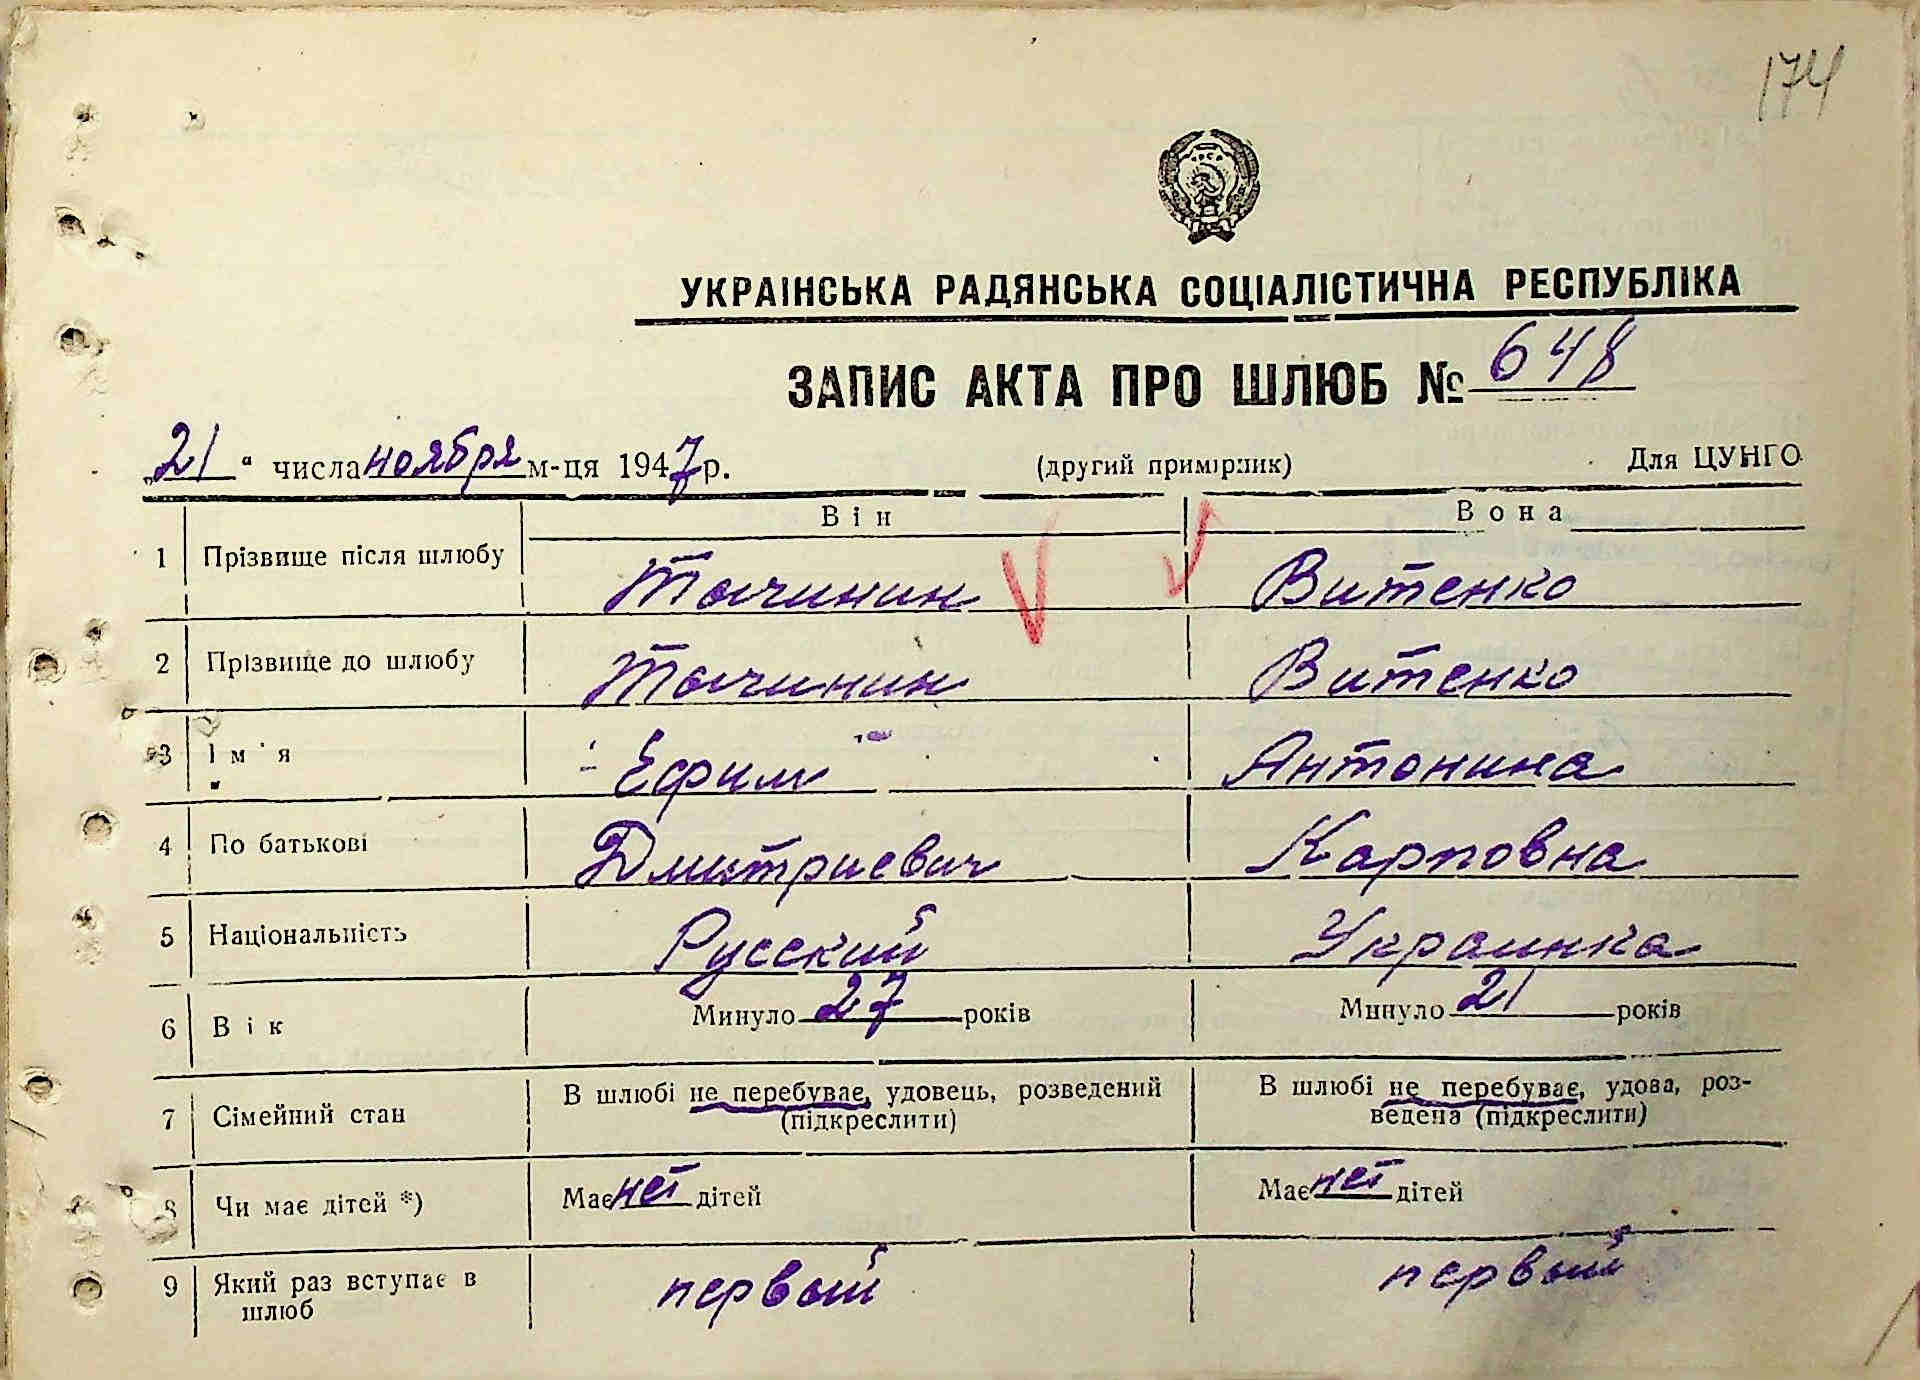 174
УКРАІНСЬКА РАДЯНСЬКА СОЦІАЛІСТИЧНА РЕСПУБЛІКА
ЗАПИС АКТА ПРО ШЛЮБ № 648
„21“ числа ноября м-ця 1947 р. (другий примірник) Для ЦУНГО
Він Вона
1 Прізвище після шлюбу Точинин Витенко
2 Прізвище до шлюбу Точинин Витенко
3 Ім'я Ефим Антонина
4 По батькові Дмитриевич Карповна
5 Національність Русский Украинка
6 Вік Минуло 27 років Минуло 21 років
7 Сімейний стан В шлюбі не перебуває, удовець, розведений (підкреслити) В шлюбі не перебуває, удова, роз-
ведена (підкреслити)
8 Чи має дітей *) Має нет дітей Має нет дітей
9 Який раз вступає в шлюб первый первый